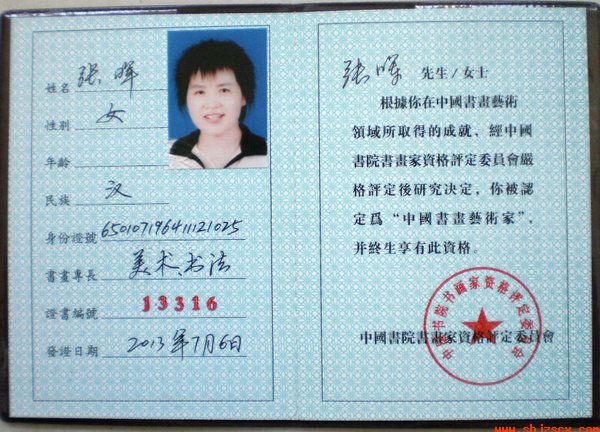 姓名 张晖
性別 女
年齡
民族 汉
身份證號 650107196411121025
書畫專長 美术、书法
證書編號 13316
發證日期 2013年7月6日
张晖 先生/女士
根據你在中國書畫藝術
領域所取得的成就，經中國
書院書畫家資格評定委員會嚴
格評定後研究决定，你被認
定爲“中國書畫藝術家”，
并終生享有此資格。
中國書院書畫家資格評定委員會
中国书院书画家资格评定委员会